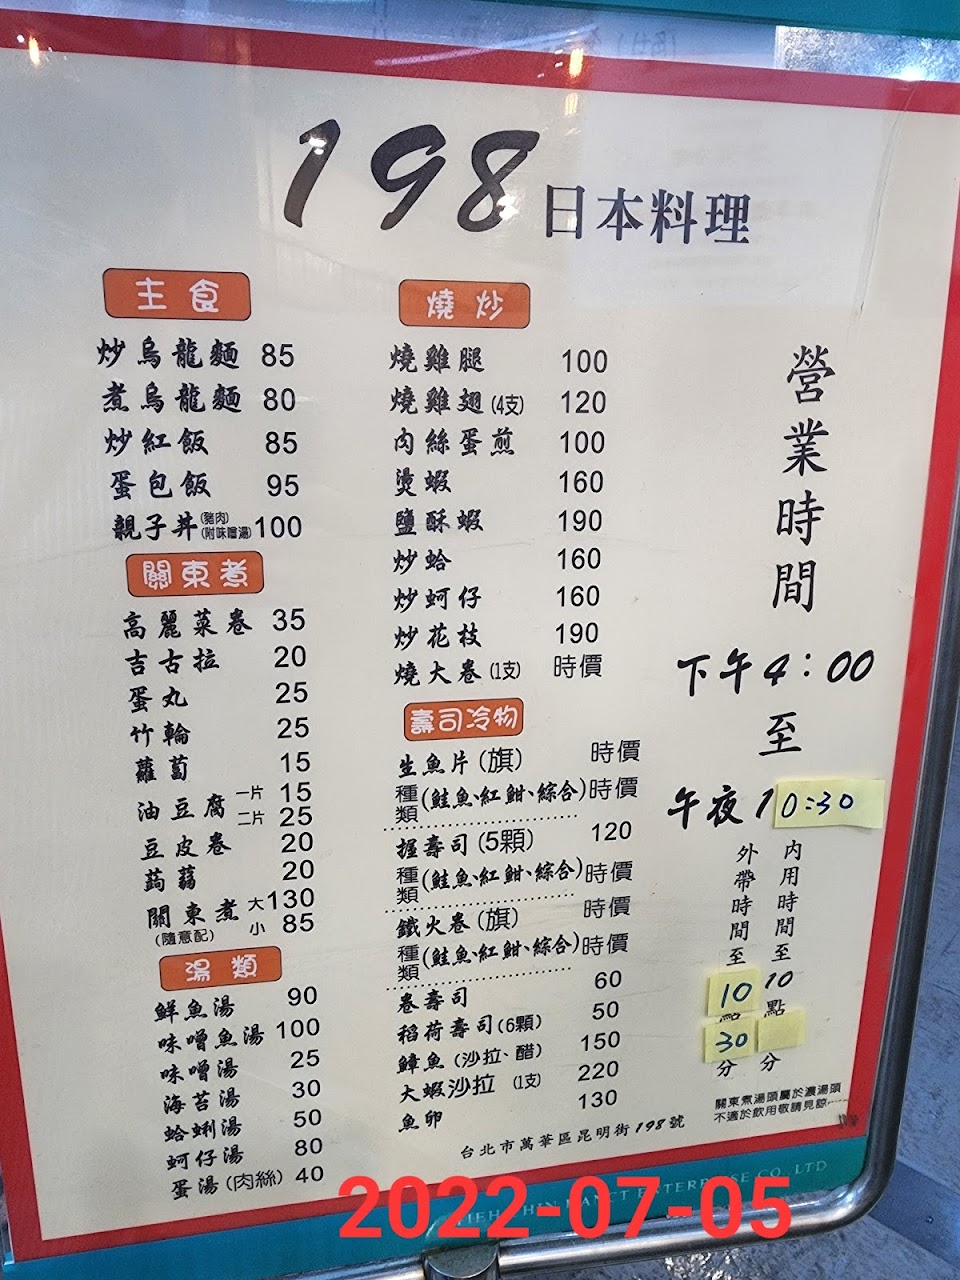 198 日本料理
主食
炒烏龍麵 85
煮烏龍麵 80
炒紅飯 85
蛋包飯 95
親子丼(豬肉)(附味噌湯) 100
關東煮
高麗菜卷 35
吉古拉 20
蛋丸 25
竹輪 25
蘿蔔 15
油豆腐 一片 15
二片 25
豆皮卷 20
蒟蒻 20
關東煮 大 130
(隨意配) 小 85
湯類
鮮魚湯 90
味噌魚湯 100
味噌湯 25
海苔湯 30
蛤蜊湯 50
蚵仔湯 80
蛋湯(肉絲) 40
燒炒
燒雞腿 100
燒雞翅(4支) 120
肉絲蛋煎 100
燙蝦 160
鹽酥蝦 190
炒蛤 160
炒蚵仔 160
炒花枝 190
燒大卷(1支) 時價
壽司冷物
生魚片(旗) 時價
種類(鮭魚、紅魽、綜合) 時價
握壽司(5顆) 120
種類(鮭魚、紅魽、綜合) 時價
鐵火卷(旗) 時價
種類(鮭魚、紅魽、綜合) 時價
卷壽司 60
稻荷壽司(6顆) 50
鱆魚(沙拉、醋) 150
大蝦沙拉(1支) 220
魚卵 130
營業時間
下午4:00
至
午夜10:30
內用時間至10點 分
外帶時間至10點30分
關東煮湯頭屬於濃湯頭
不適於飲用敬請見諒
台北市萬華區昆明街198號
ENTERPRISE CO., LTD
2022-07-05